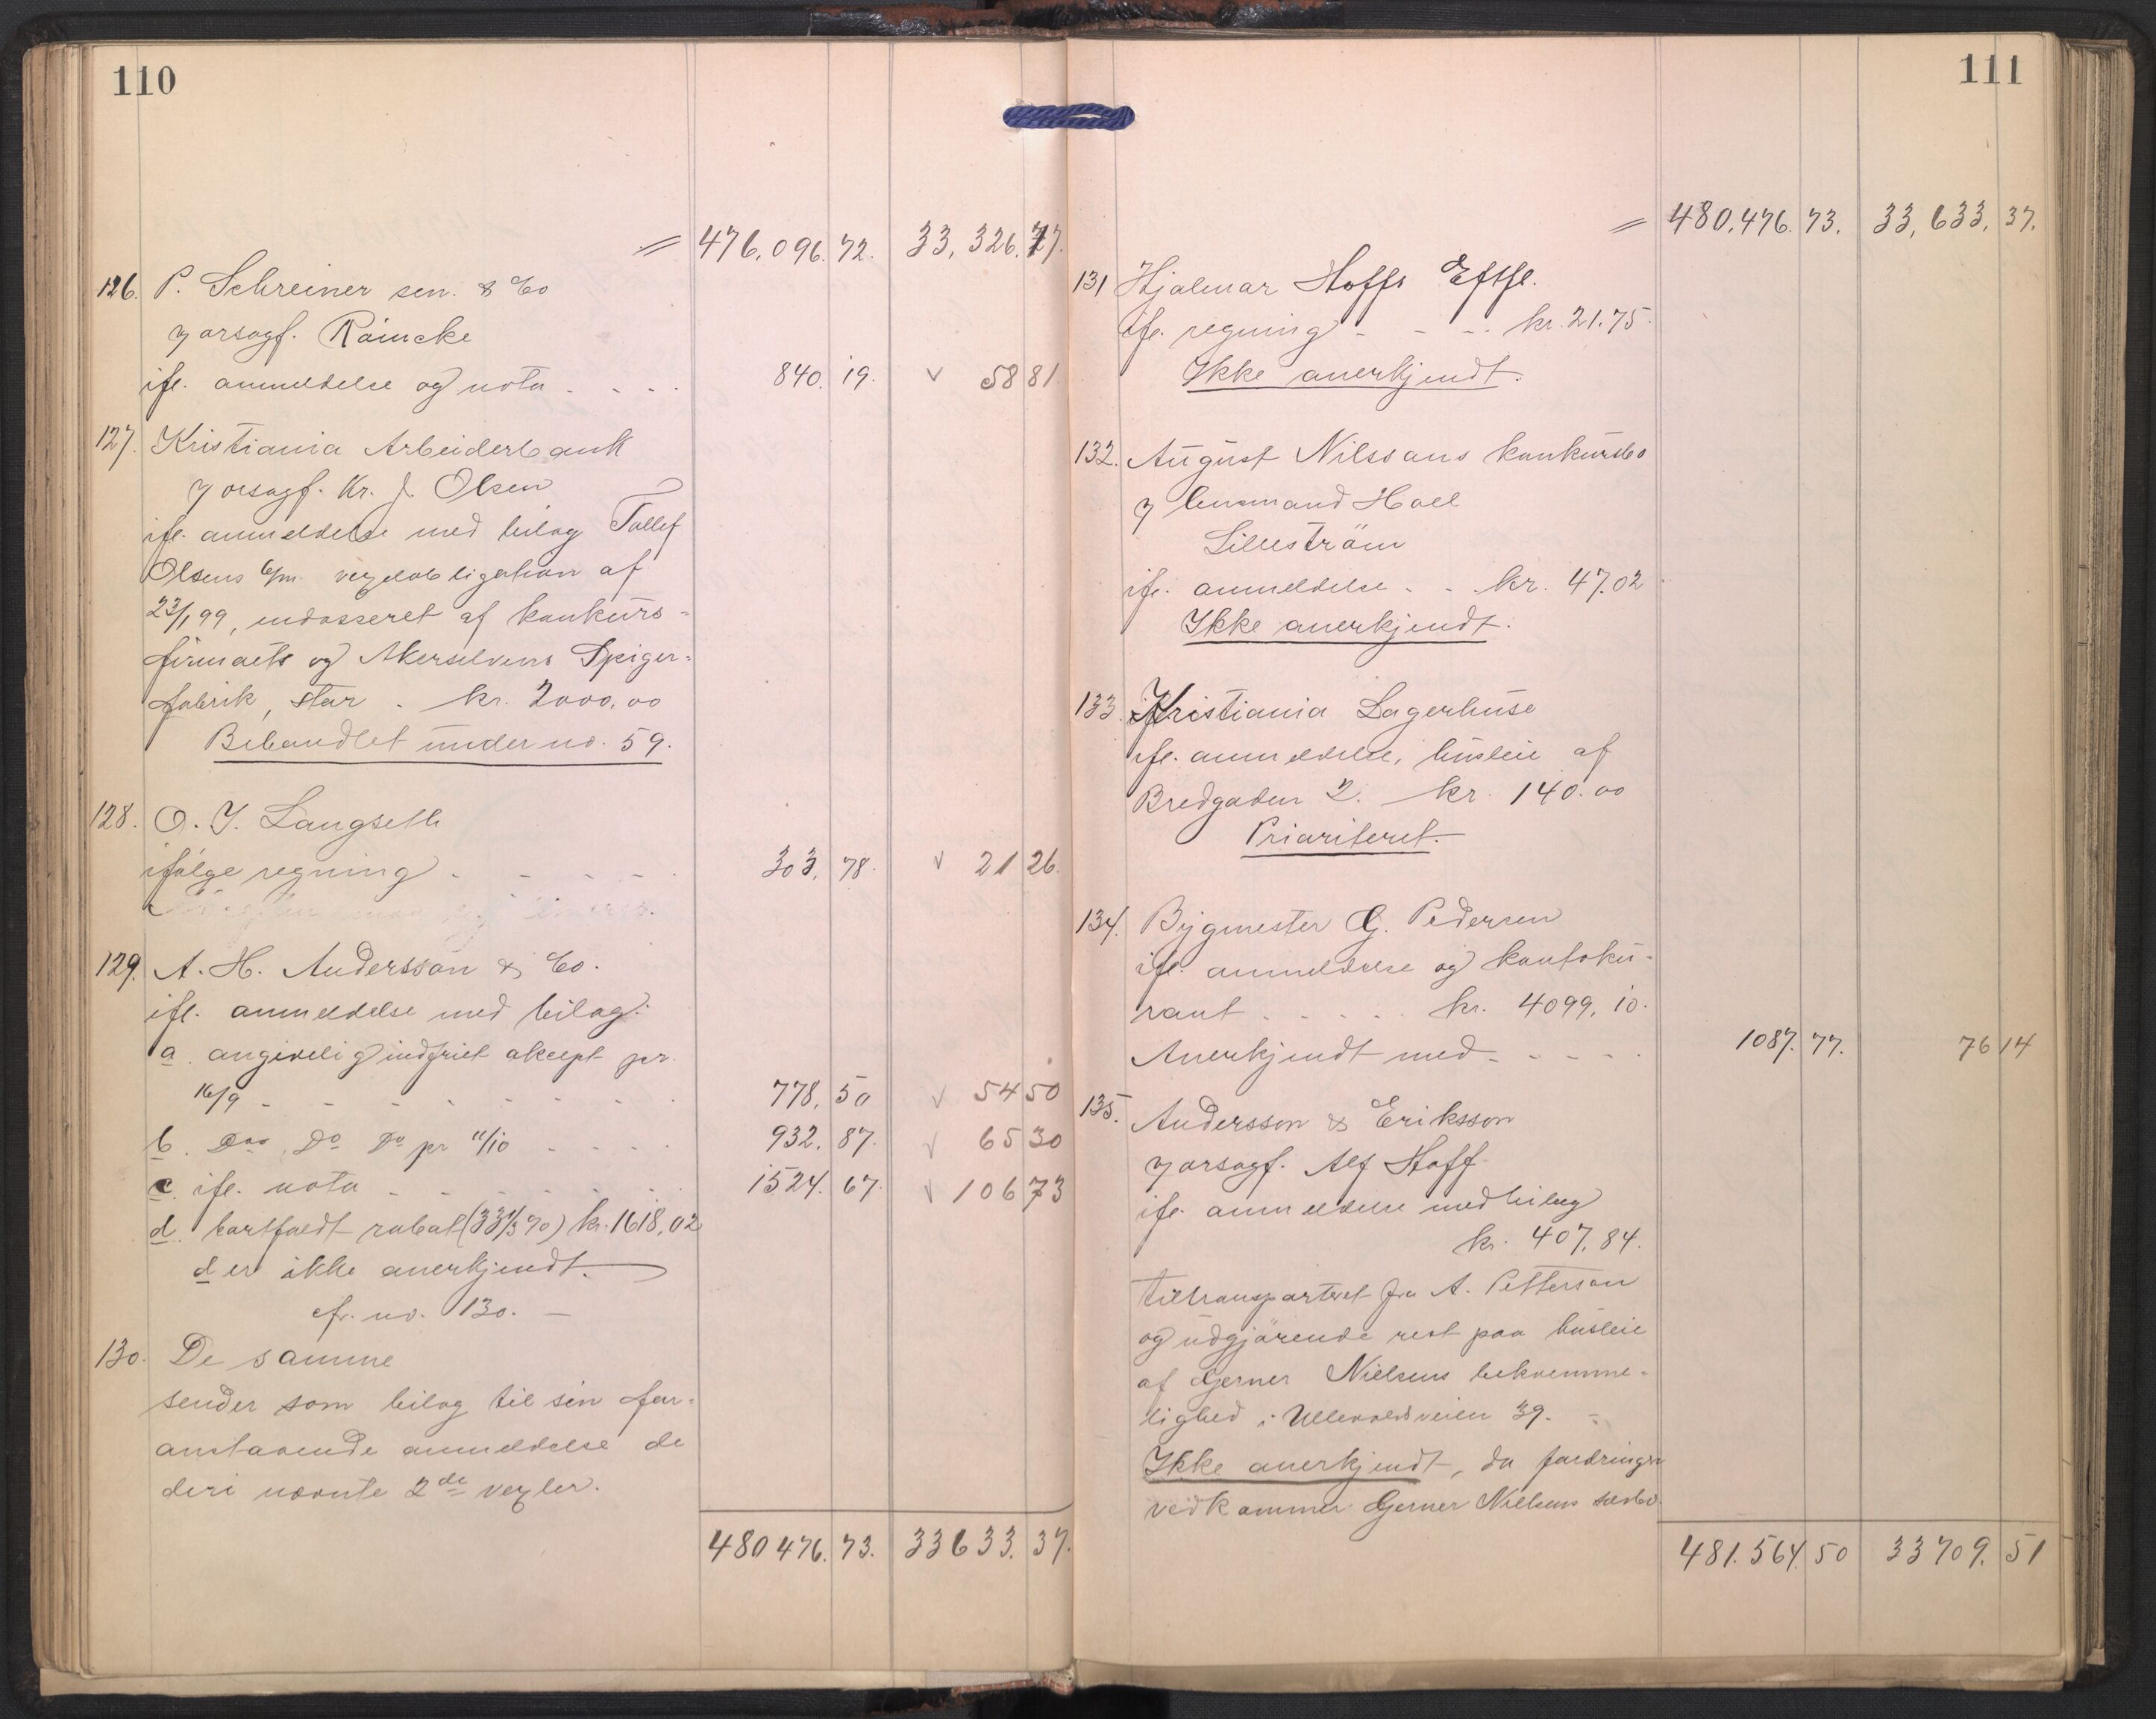 110
= 476,096. 72. 33,326. 77.
126. P. Schreiner sen. & Co
v/ orsagf. Räincke
ifl. anmeldelse og nota - - - - 840. 19. v 58 81.
127. Kristiania Arbeiderbank
v/ orsagf. Kr. J. Olsen
ifl. anmeldelse med bilag Tollef
Olsens 6/m. vexelobligation af
23/1 99, endosseret af konkurs-
firmaets og Akerselvens Spiger-
fabrik, stor . kr. 2000,00
Behandlet under no. 59.
128. O. J. Langseth
ifølge regning - - - - - 303. 78. v 21 26.
129. A. H. Andersson & Co.
ifl. anmeldelse med bilag:
a. angivelig indfriet aksept pr.
16/9 - - - - - - - 778. 50 v 54 50
b. Do Do Do pr 11/10 - - - - 932. 87. v 65 30
c. ifl. nota - - - - - - 1524. 67. v 106 73
d. bortfaldt rabat (33 1/3 %) kr. 1618,02
d er ikke anerkjendt.
cfr. no. 130. -
130. De samme
sender som bilag til sin for-
anstaaende anmeldelse de
deri nævnte 2de vexler.
480 476. 73. 33633. 37.
111
= 480.476. 73. 33,633. 37.
131 Hjalmar Hoffs Eftfl.
ifl. regning - - - kr. 21.75.
Ikke anerkjendt.
132. August Nilssons konkursbo
v/ lensmand Holl
Lilleström
ifl. anmeldelse - - kr. 47.02
Ikke anerkjendt.
133. Kristiania Lagerhuse
ifl. anmeldelse, husleie af
Bredgaden 2. kr. 140.00
Prioriteret.
134. Bygmester G. Pedersen
ifl. anmeldelse og kontoku-
rant - - - - - kr. 4099,10.
Anerkjendt med - - - - - 1087. 77. 76 14
135. Andersson & Eriksson
v/ orsagf. Alf Hoff
ifl. anmeldelse med bilag
kr. 407,84.
tiltransporteret fra A. Petterson
og udgjörende rest paa husleie
af Gerner Nielsens bekvemme-
lighed i Ullevoldsveien 39. -
Ikke anerkjendt, da fordringen
vedkommer Gerner Nielsens særbo.
481.564. 50 33709. 51